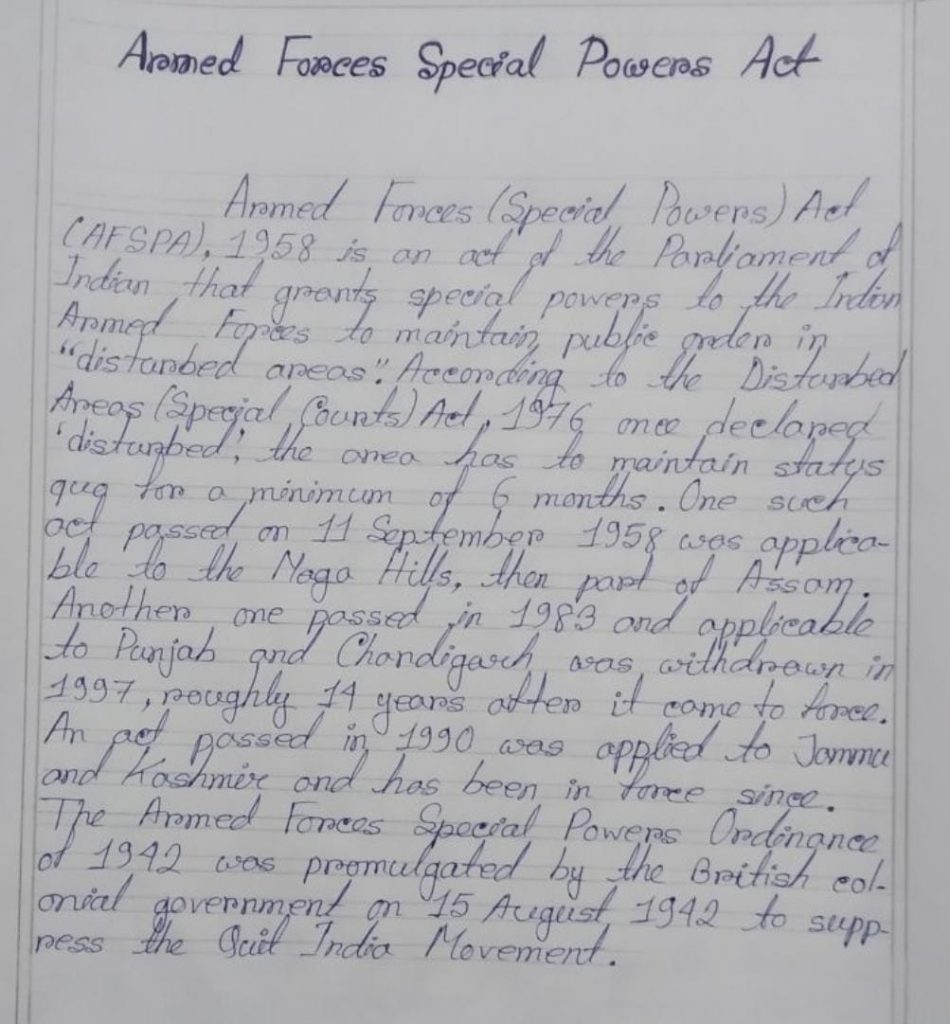 Armed Forces Special Powers Act
Armed Forces (Special Powers) Act
(AFSPA), 1958 is an act of the Parliament of
Indian that grants special powers to the Indian
Armed Forces to maintain public order in
"disturbed areas". According to the Disturbed
Areas (Special Courts) Act, 1976 once declared
'disturbed', the area has to maintain status
quo for a minimum of 6 months. One such
act passed on 11 September 1958 was applica-
ble to the Naga Hills, then part of Assam.
Another one passed in 1983 and applicable
to Punjab and Chandigarh was withdrawn in
1997, roughly 14 years after it came to force.
An act passed in 1990 was applied to Jammu
and Kashmir and has been in force since.
The Armed Forces Special Powers Ordinance
of 1942 was promulgated by the British col-
onial government on 15 August 1942 to supp-
ress the Quit India Movement.